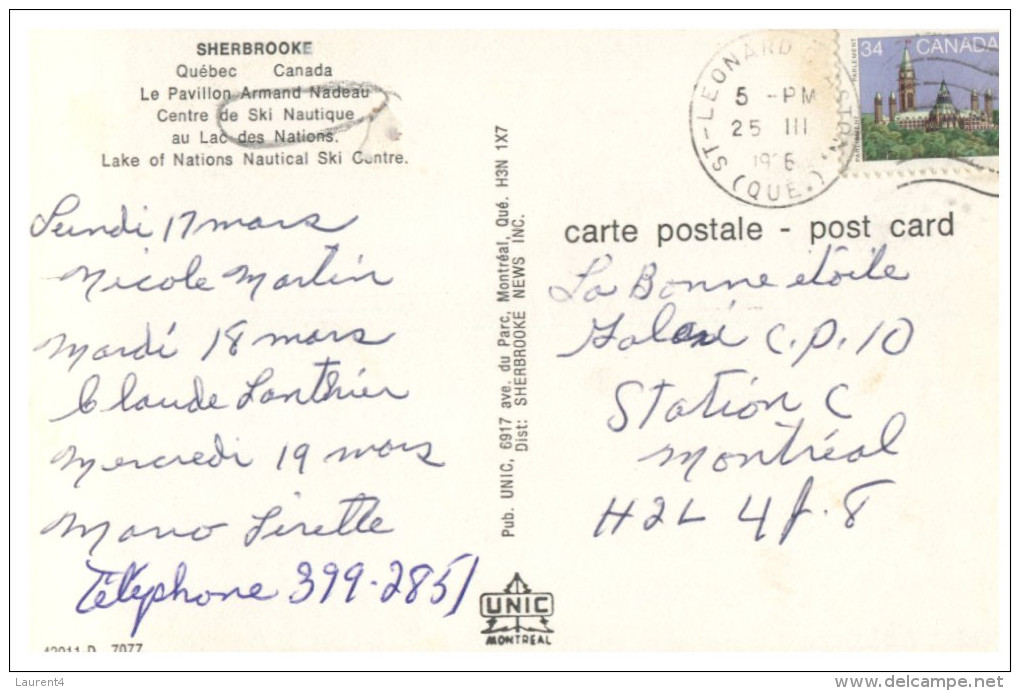 SHERBROOKE
Québec Canada
Le Pavillon Armand Nadeau
Centre de Ski Nautique
au Lac des Nations.
Lake of Nations Nautical Ski Centre.
Lundi 17 mars
Nicole Martin
Mardi 18 mars
Claude Lanthier
Mercredi 19 mars
Mario Lirette
Téléphone 399-2851
7077
Pub. UNIC, 6917 ave. du Parc, Montréal, Qué. H3N 1X7
Dist: SHERBROOKE NEWS INC.
UNIC
MONTREAL
ST-LEONARD
5 -PM
25 III
(QUE.)
34 CANADA
PARLEMENT
PARLIAMENT
carte postale - post card
La Bonne étoile
C.P. 10
Station C
Montréal
H2L 4J.8
Laurent4
www.delcampe.net